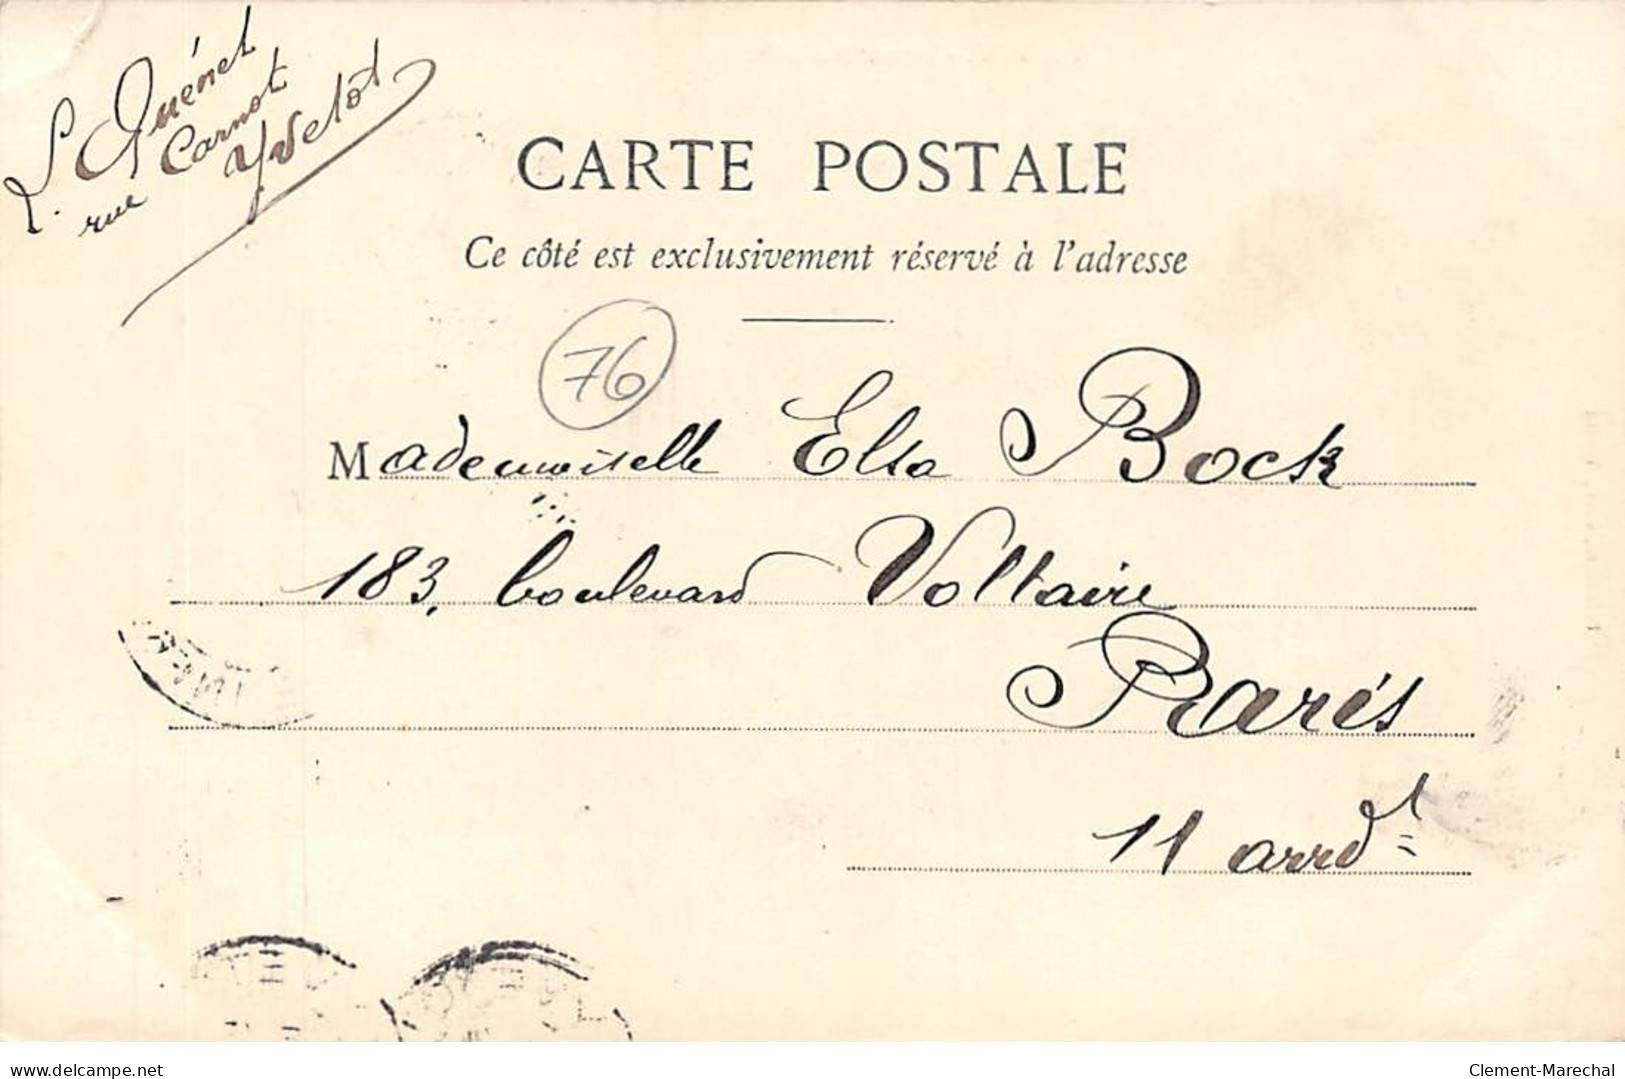 L. Quénet
rue Carnot
Yvetot
CARTE POSTALE
Ce côté est exclusivement réservé à l'adresse
76
Mademoiselle Elsa Bock
183, boulevard Voltaire
Paris
11 arrdt
www.delcampe.net
Clement-Marechal